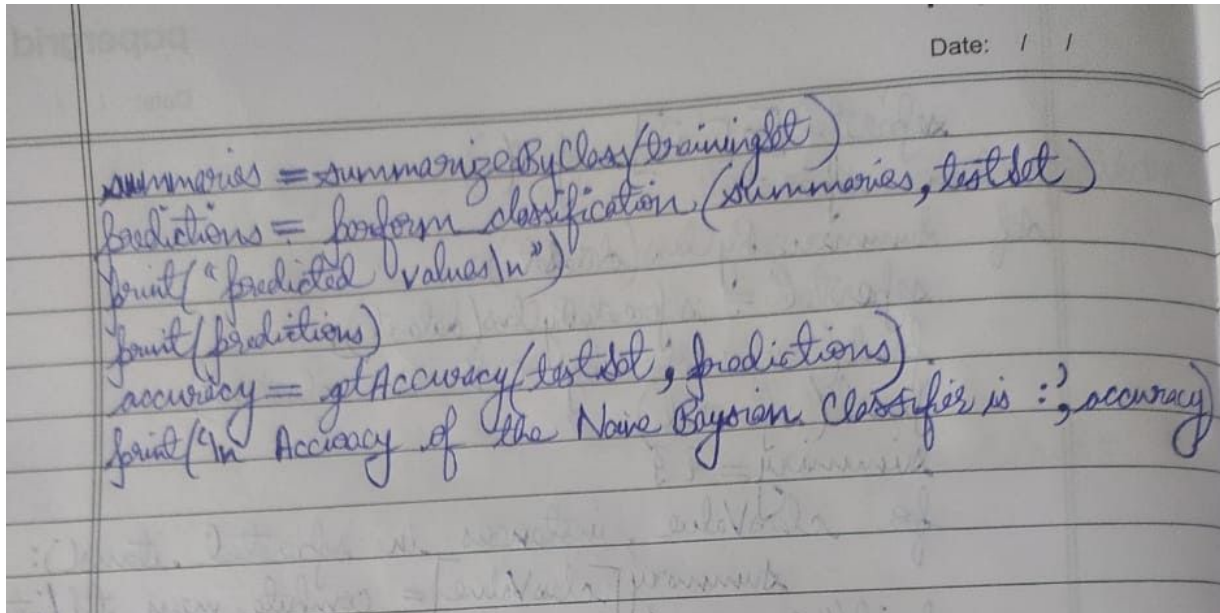 Date: / /
summaries = summarizeByClass(trainingSet)
predictions = perform classification (summaries, testSet)
print("predicted values\n")
print(predictions)
accuracy = getAccuracy(testSet, predictions)
print('\n Accuracy of the Naive Baysian Classifier is :', accuracy)